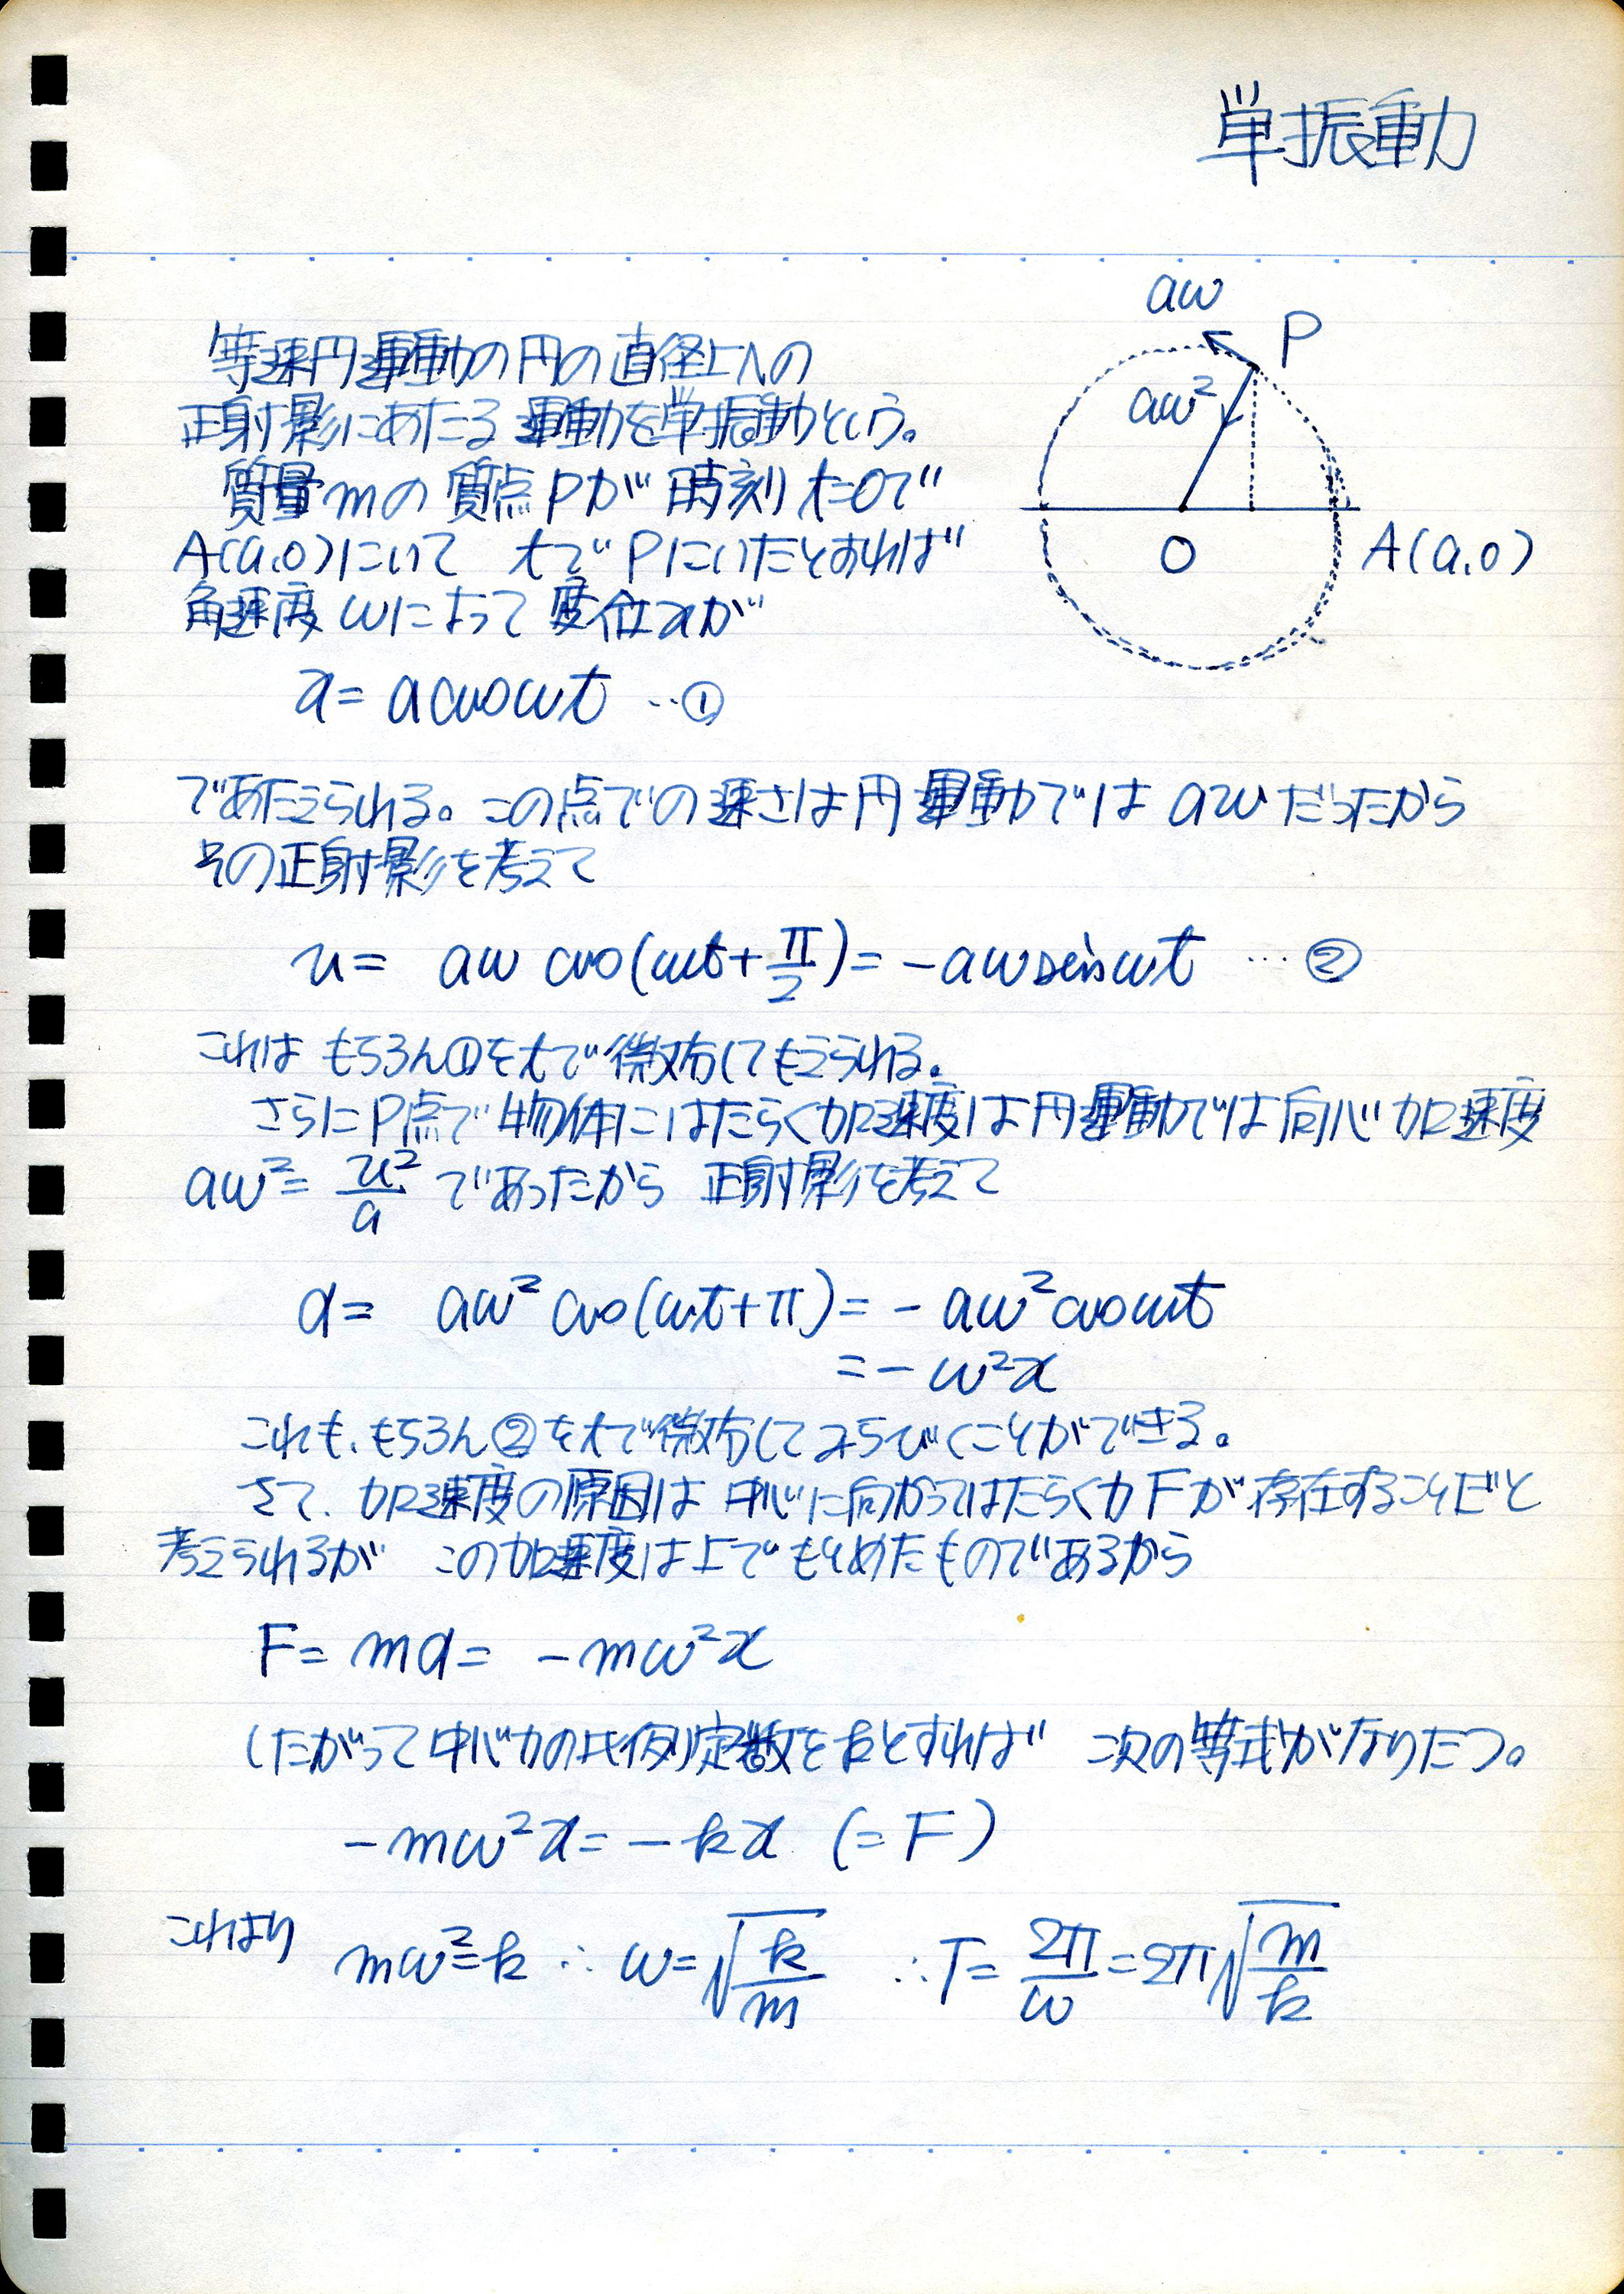 単振動
aω
P
aω²
O
A(a,0)
等速円運動の円の直径上への
正射影にあたる運動を単振動という。
質量mの質点Pが時刻t=0で
A(a,0)にいて tでPにいたとすれば
角速度ωによって変位xが
x= a cosωt …①
であたえられる。この点での速さは円運動ではaωだったから
その正射影を考えて
v= aω cos(ωt+π/2)= -aω sinωt …②
これはもちろん①をtで微分してもえられる。
さらにP点で物体にはたらく加速度は円運動では向心加速度
aω²= v²/a であったから 正射影を考えて
α= aω² cos(ωt+π)= -aω² cosωt
= -ω²x
これも、もちろん②をtで微分してみちびくことができる。
さて、加速度の原因は中心に向かってはたらく力Fが存在することだと
考えられるが この加速度は上でもとめたものであるから
F= mα= -mω²x
したがって中心力の比例定数をkとすれば 次の等式がなりたつ。
-mω²x= -kx (=F)
これより mω²=k ∴ω=√(k/m) ∴T= 2π/ω=2π√(m/k)